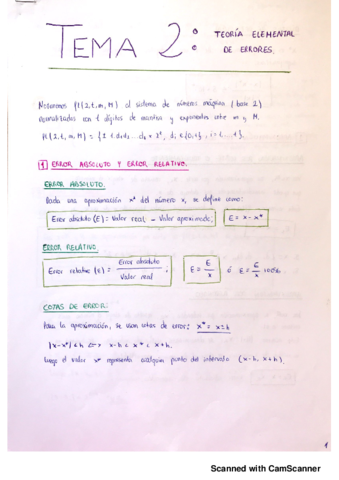 TEMA 2: TEORÍA ELEMENTAL
DE ERRORES.
Notaremos F(2,t,m,M) al sistema de números máquina (base 2)
normalizados con t dígitos de mantisa y exponentes entre m y M.
F(2,t,m,M) = {± 0.d₁d₂...dₜ × 2ᵉ, dᵢ ∈ {0,1}, i=1,...,t}.
1 ERROR ABSOLUTO Y ERROR RELATIVO.
ERROR ABSOLUTO.
Dada una aproximación x* del número x, se define como:
Error absoluto (E) = Valor real - Valor aproximado; E = x - x*
ERROR RELATIVO.
Error relativo (ε) = Error absoluto / Valor real; ε = E/x ó ε = E/x · 100%.
COTAS DE ERROR:
Para la aproximación, se usan cotas de error: x* = x ± h
|x-x*| ≤ h ⇔ x-h ≤ x* ≤ x+h.
luego el valor x* representa cualquier punto del intervalo (x-h, x+h).
1
Scanned with CamScanner